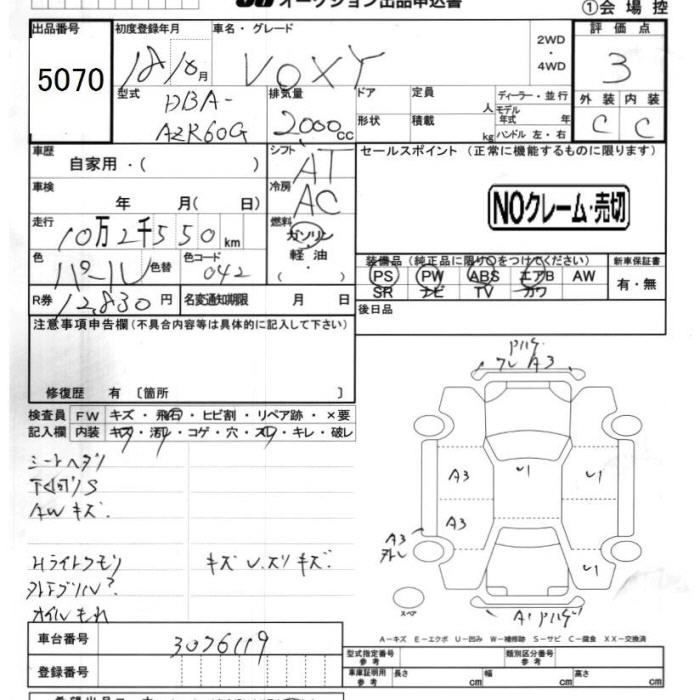 オークション出品申込書
①会場控
出品番号 初度登録年月 車名・グレード 2WD ・ 4WD 評価点
5070 18/10月 VOXY 3
型式 排気量 ドア 定員 人 ディーラー・並行 外装 内装
DBA- モデル年式 年
AZR60G 2000cc 形状 積載 kg ハンドル 左・右 C C
車歴 シフト セールスポイント (正常に機能するものに限ります)
自家用・( ) AT
車検 冷房
年 月( 日) AC NOクレーム・売切
走行 燃料
10万2千550km ガソリン・軽油・( )
色 色替 カラーコード 装備品(純正品に限り○をつけてください) 新車保証書
パール 042 PS PW ABS エアB AW 有・無
R券 12,830円 名変通知期限 月 日 SR ナビ TV カワ
後日品
注意事項申告欄(不具合内容等は具体的に記入して下さい)
修復歴 有 〔箇所 〕
検査員 FW キズ・飛石・ヒビ割・リペア跡・×要
記入欄 内装 キズ・汚レ・コゲ・穴・スレ・キレ・破レ
シートヘタリ
下回りS
AWキズ.
Hライトクモリ キズU.スリキズ.
オイルもれ
Pハゲ
ワレ A3
A3 U1 U1
A3
A3
U1
スペア
A1 Pハゲ
A-キズ E-エクボ U-凹み W-補修跡 S-サビ C-腐食 XX-交換済
車台番号 3026119
型式指定番号 参考 類別区分番号 参考
登録番号
車庫証明用 参考 長さ cm 幅 cm 高さ cm